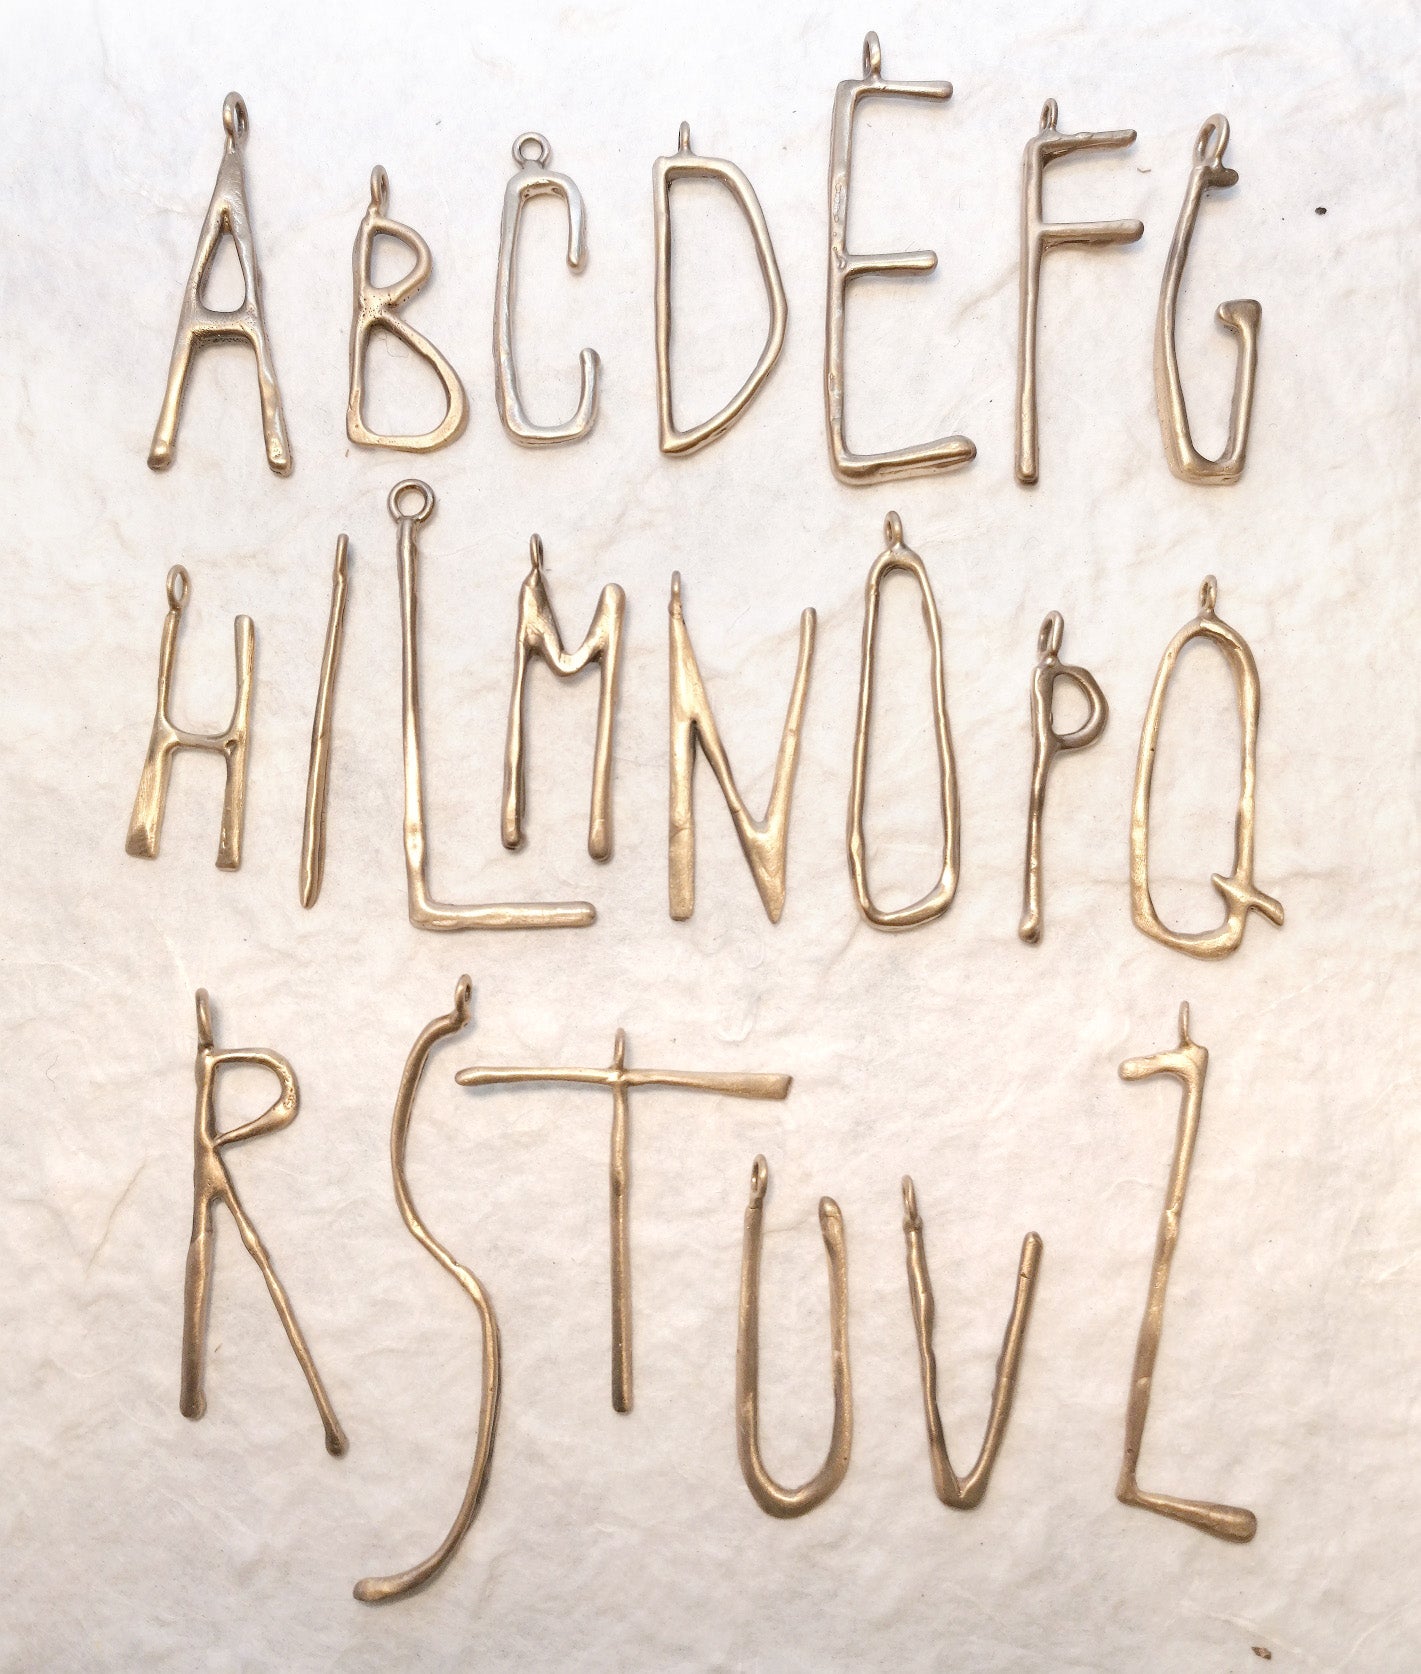 A B C D E F G
H I L M N O P Q
R S T U V Z